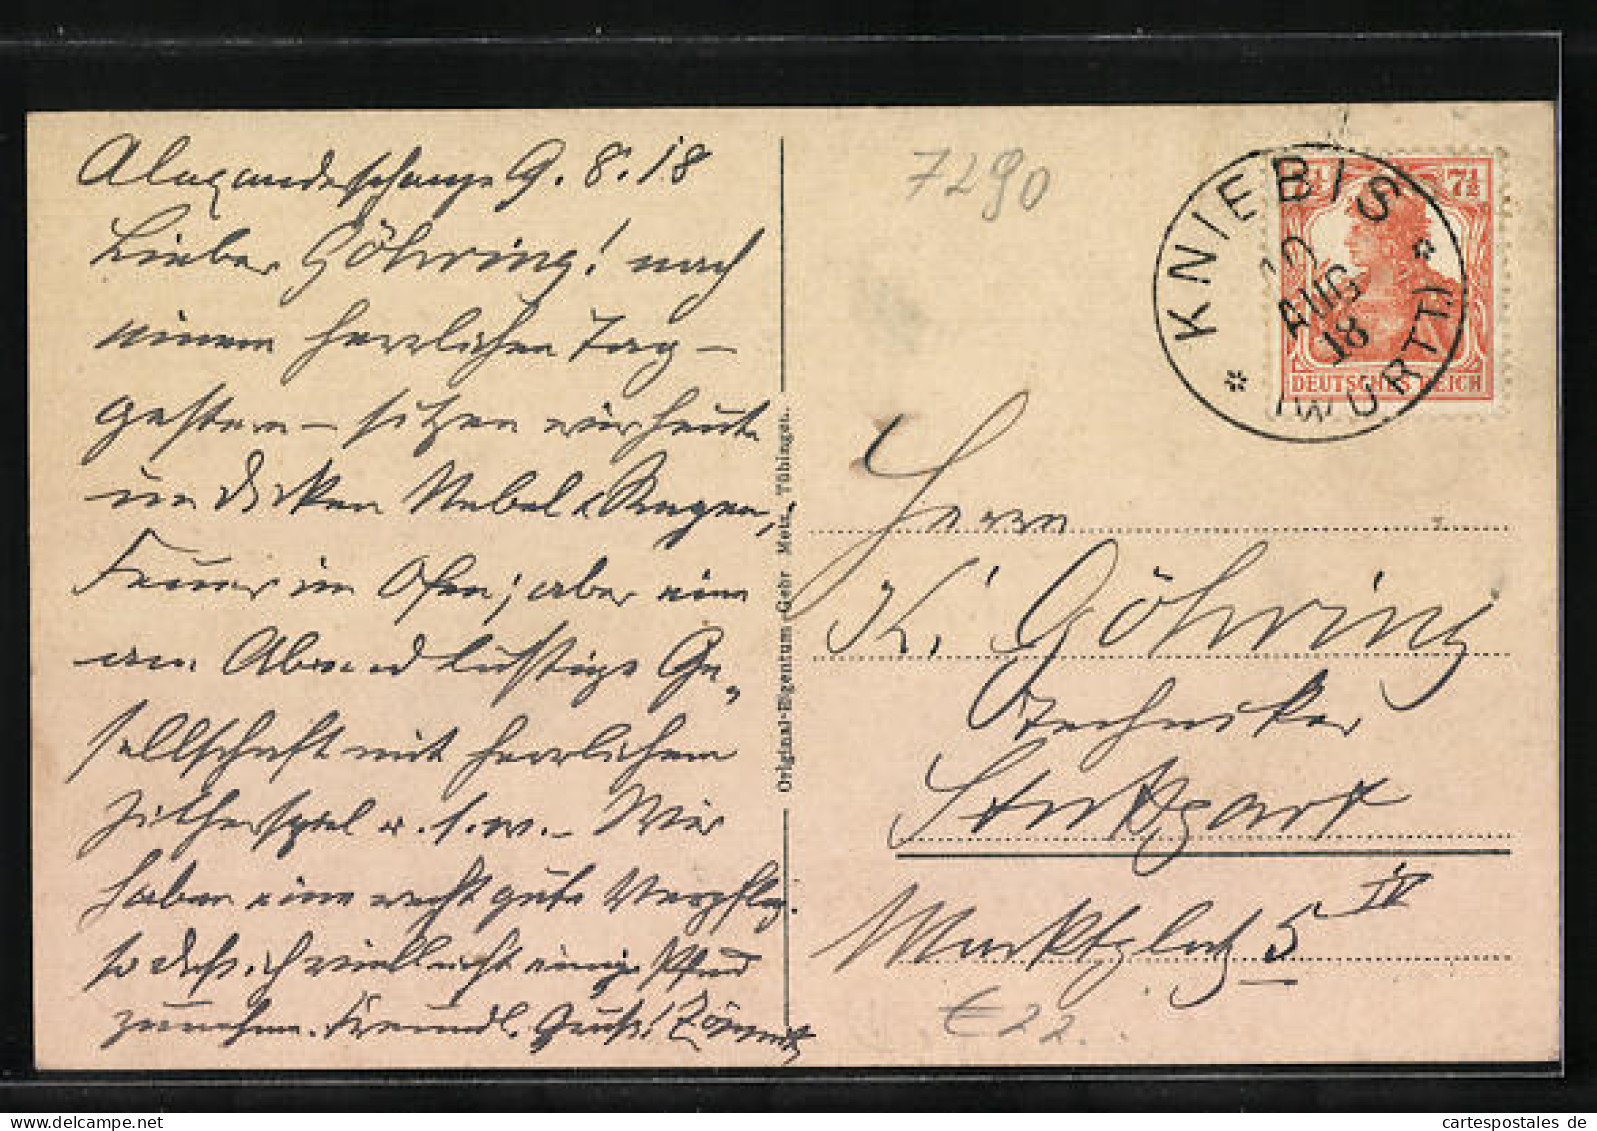 Alexanderschanze 9.8.18
Lieber Göhring! nach
einem herrlichen Tag –
gestern – sitzen wir heute
im dicken Nebel & Regen,
Feuer im Ofen; aber eine
am Abend lustige Ge-
sellschaft mit herrlichem
Zitherspiel u.s.w. – Wir
haben eine recht gute Verpfleg.
so daß ich vielleicht einige Pfund
zunehme. Freundl. Gruß!
Original-Eigentum Gebr. Metz, Tübingen.
7290
KNIEBIS
10
AUG
18
(WÜRTT.)
7½
7½
DEUTSCHES REICH
Herrn
K. Göhring
Techniker
Stuttgart
Marktplatz 5 IV
€ 22.
cartespostales de